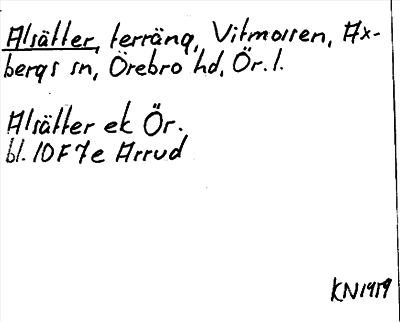 Alsätter, terräng, Vitmossen, Ax-
bergs sn, Örebro hd, Ör. l.
Alsätter ek Ör.
bl. 10F7e Arrud
KN1979